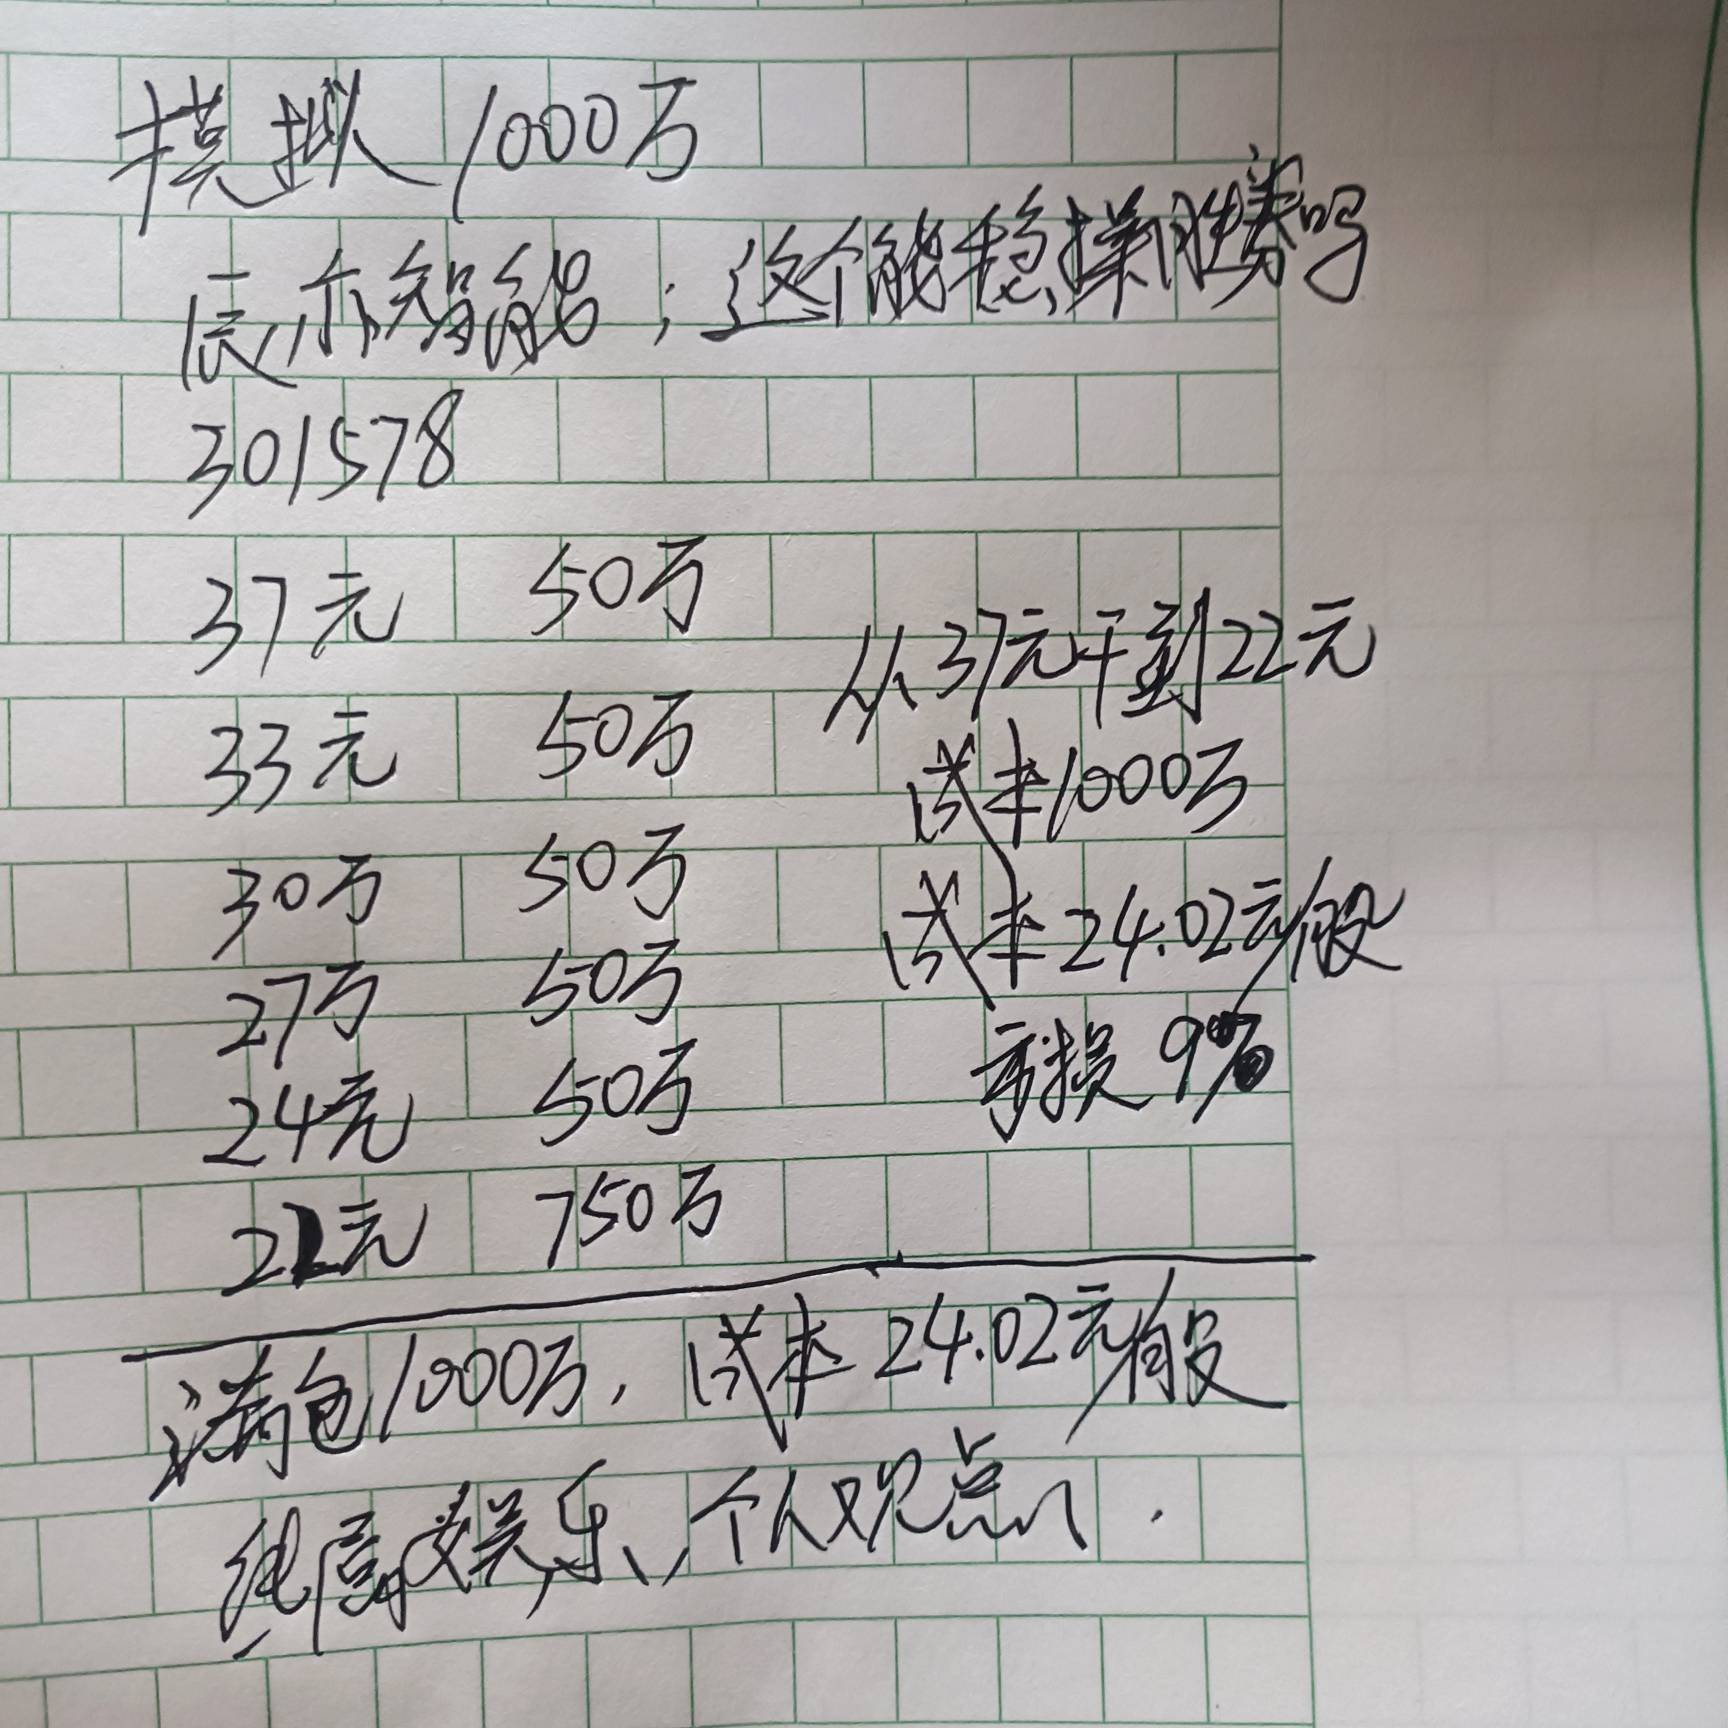 模拟1000万
辰奕智能；这个能稳操胜券吗
301578
37元 50万
33元 50万
30万 50万
27万 50万
24元 50万
22元 750万
从37元干到22元
成本1000万
成本24.02元/股
亏损9%
满仓1000万，成本24.02元/股
纯属娱乐，个人观点．